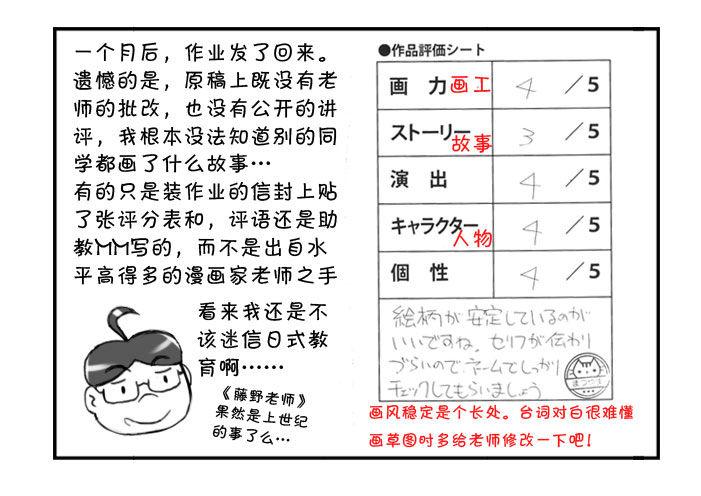 一个月后，作业发了回来。
遗憾的是，原稿上既没有老
师的批改，也没有公开的讲
评，我根本没法知道别的同
学都画了什么故事…
有的只是装作业的信封上贴
了张评分表和，评语还是助
教MM写的，而不是出自水
平高得多的漫画家老师之手
看来我还是不
该迷信日式教
育啊……
《藤野老师》
果然是上世纪
的事了么…
●作品評価シート
画 力 画工 4 /5
ストーリー 故事 3 /5
演 出 4 /5
キャラクター 人物 4 /5
個 性 4 /5
絵柄が安定しているのが
いいですね。セリフが伝わり
づらいのでネームでしっかり
チェックしてもらいましょう
画风稳定是个长处。台词对白很难懂
画草图时多给老师修改一下吧！